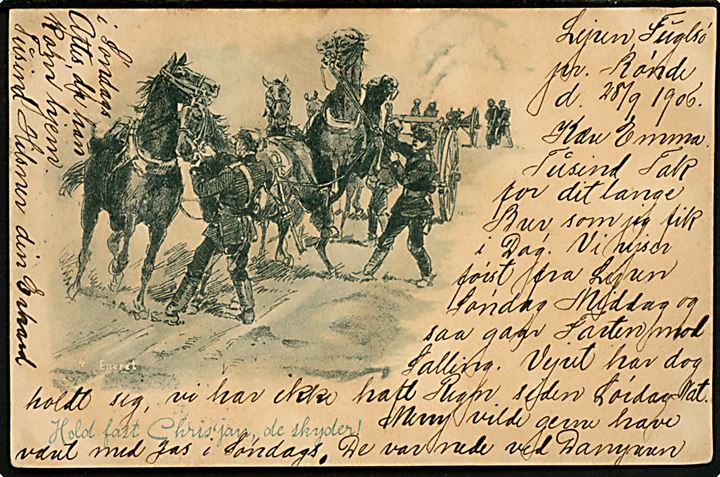 Lejren, Fuglsø
pr. Rønde
d. 28/9 1906.
Kære Emma.
Tusind Tak
for dit lange
Brev som jeg fik
i Dag. Vi rejser
først fra Lejren
Søndag Middag og
saa gaar Farten mod
Falling. Vejret har dog
holdt sig, vi har ikke haft Regn siden Lördag Nat.
Meny vilde gerne have
været med Jas i Søndags. De var nede ved
i Søndags
kom hjem
Tusind Hilsner din Erhard
4 Eneret
Hold fast Chris'jan, de skyder!